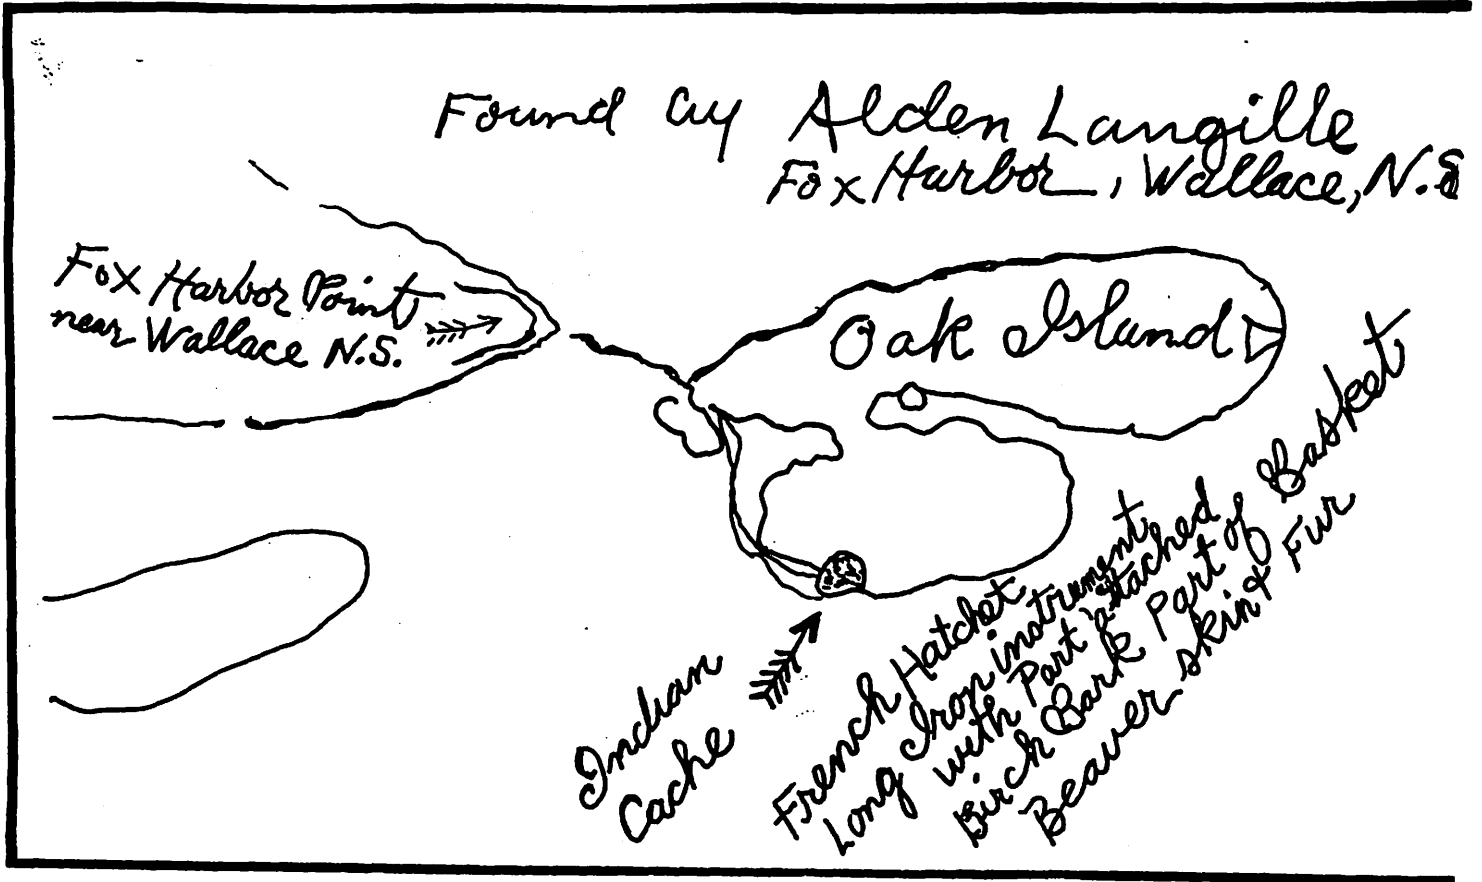 Found by Alden Langille
Fox Harbor, Wallace, N.S.
Fox Harbor Point
near Wallace N.S.
Oak Island
Indian
Cache
French Hatchet
Long Iron instrument
with Part attached
Birch Bark Part of Basket
Beaver skin & Fur